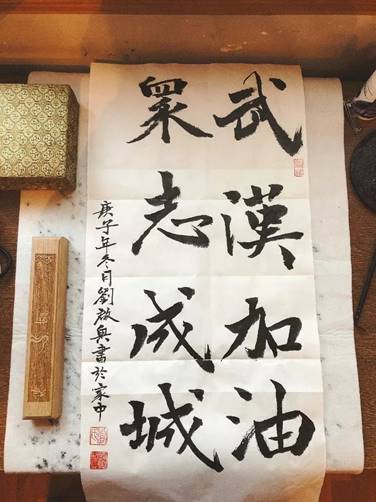 武漢加油
眾志成城
庚子年冬月劉啟興書於家中